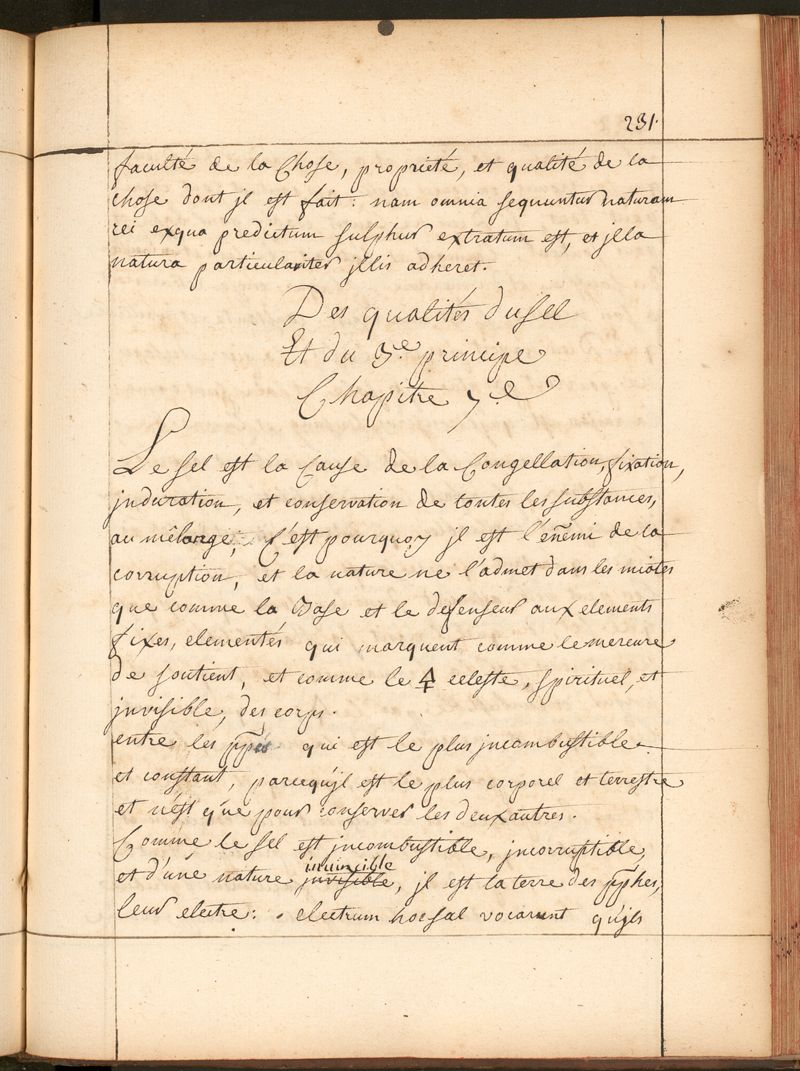 231.
faculté de la Chose, propriété, et qualité de la
chose dont jl est fait: nam omnia sequuntur naturam
rei exqua predictum sulphur extratum est, et jlla
natura particulariter jllis adheret.
Des qualités du sel
Et du 3.e principe
Chapitre 7.e
Le sel est la Cause de la Congellation, fixation,
jnduration, et conservation de toutes les substances,
au mêlange; C'est pourquoy jl est l'eñemi de la
corruption, et la nature ne l'admet dans les mixtes
que comme la Base et le defenseur aux elements
fixes, elementés qui marquent comme le mercure
de soutient, et comme le 🜍 celeste, spirituel, et
jnvisible, des corps.
entre les ppes qui est le plus jncombustible
et constant, parcequ'jl est le plus corporel et terrestre
et n'est que pour conserver les deux autres.
Comme le sel est jncombustible, jncorruptible,
et d'une nature jnvisible invincible, jl est la terre des pphes,
leur electre: electrum hoc sal vocarunt qu'jls